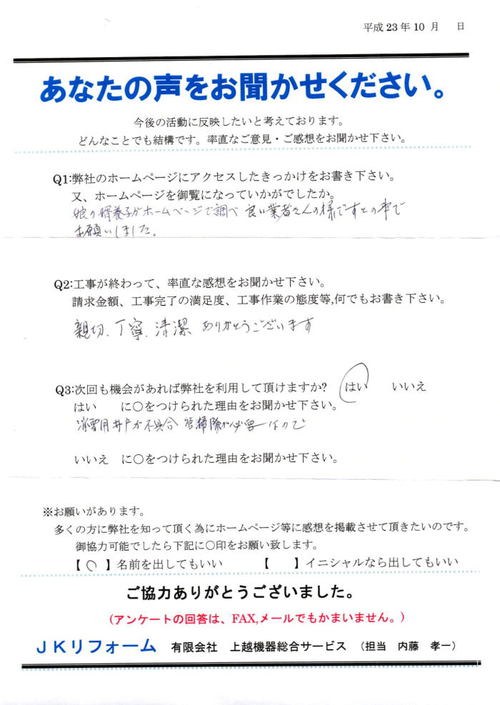 平成23年10月　日
あなたの声をお聞かせください。
今後の活動に反映したいと考えております。
どんなことでも結構です。率直なご意見・ご感想をお聞かせ下さい。
Q1:弊社のホームページにアクセスしたきっかけをお書き下さい。
又、ホームページを御覧になっていかがでしたか。
娘の 養子がホームページで調べ 良い業者さんの様ですとの事で
お願いしました。
Q2:工事が終わって、率直な感想をお聞かせ下さい。
請求金額、工事完了の満足度、工事作業の態度等,何でもお書き下さい。
親切、丁寧、清潔 ありがとうございます
Q3:次回も機会があれば弊社を利用して頂けますか?　はい　いいえ
はい　に○をつけられた理由をお聞かせ下さい。
消雪用井戸が不具合 管掃除が必要なので
いいえ　に○をつけられた理由をお聞かせ下さい。
※お願いがあります。
多くの方に弊社を知って頂く為にホームページ等に感想を掲載させて頂きたいのです。
御協力可能でしたら下記に○印をお願い致します。
【○】名前を出してもいい　【　】イニシャルなら出してもいい
ご協力ありがとうございました。
(アンケートの回答は、FAX,メールでもかまいません。)
JKリフォーム　有限会社　上越機器総合サービス　(担当　内藤　孝一)